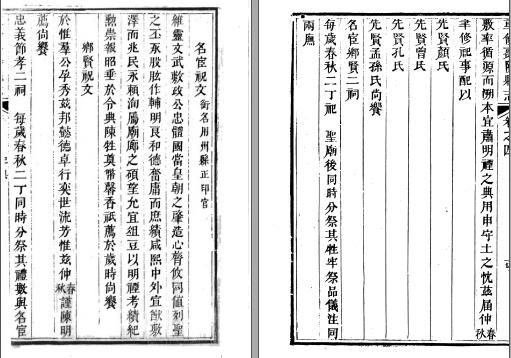 重修嘉魚縣志 卷之四
敷率循源而溯本宜肅明禋之典用申守土之忱茲屆仲春秋
聿修祀事配以
先賢顏氏
先賢曾氏
先賢孔氏
先賢孟孫氏尚饗
名宦鄉賢二祠
每歲春秋二丁祀 聖廟後同時分祭其牲牢祭品儀注同
兩廡
名宦祝文 銜名用州縣正印官
維靈文武敷政公忠體國當皇朝之肇造心膂攸同值列聖
之丕承股肱作輔明良和德奮庸而庶績咸熙中外宣猷敷
澤而兆民永賴洵屬廟廊之碩望允宜俎豆以明禋考績紀
勳崇報昭垂於令典陳牲奠幣馨香祇薦於歲時尚饗
鄉賢祝文
於惟羣公孕秀茲邦懿德卓行奕世流芳惟茲仲春秋謹陳明
薦尚饗
忠義節孝二祠 每歲春秋二丁同時分祭其禮數與名宦